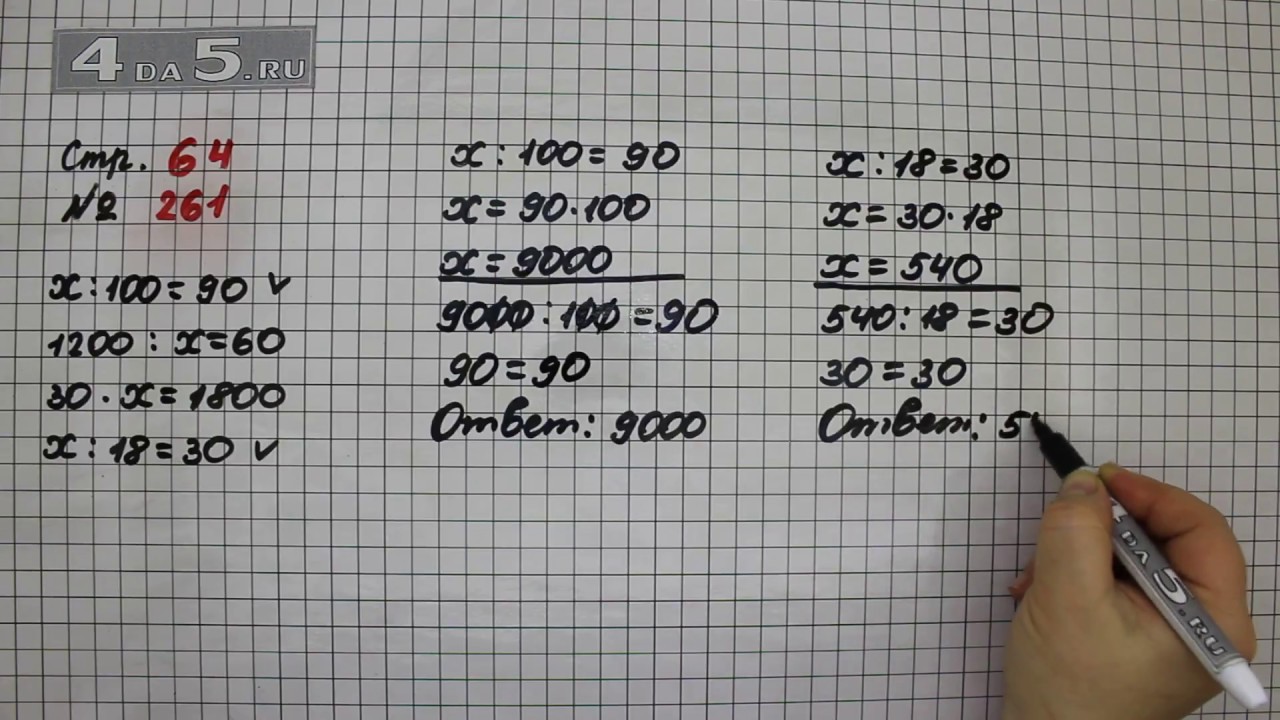 4DA5.RU
Стр. 64
№ 261
x : 100 = 90 ✓
1200 : x = 60
30 · x = 1800
x : 18 = 30 ✓
x : 100 = 90
x = 90 · 100
x = 9000
9000 : 100 = 90
90 = 90
Ответ: 9000
x : 18 = 30
x = 30 · 18
x = 540
540 : 18 = 30
30 = 30
Ответ: 54
4DA5.RU